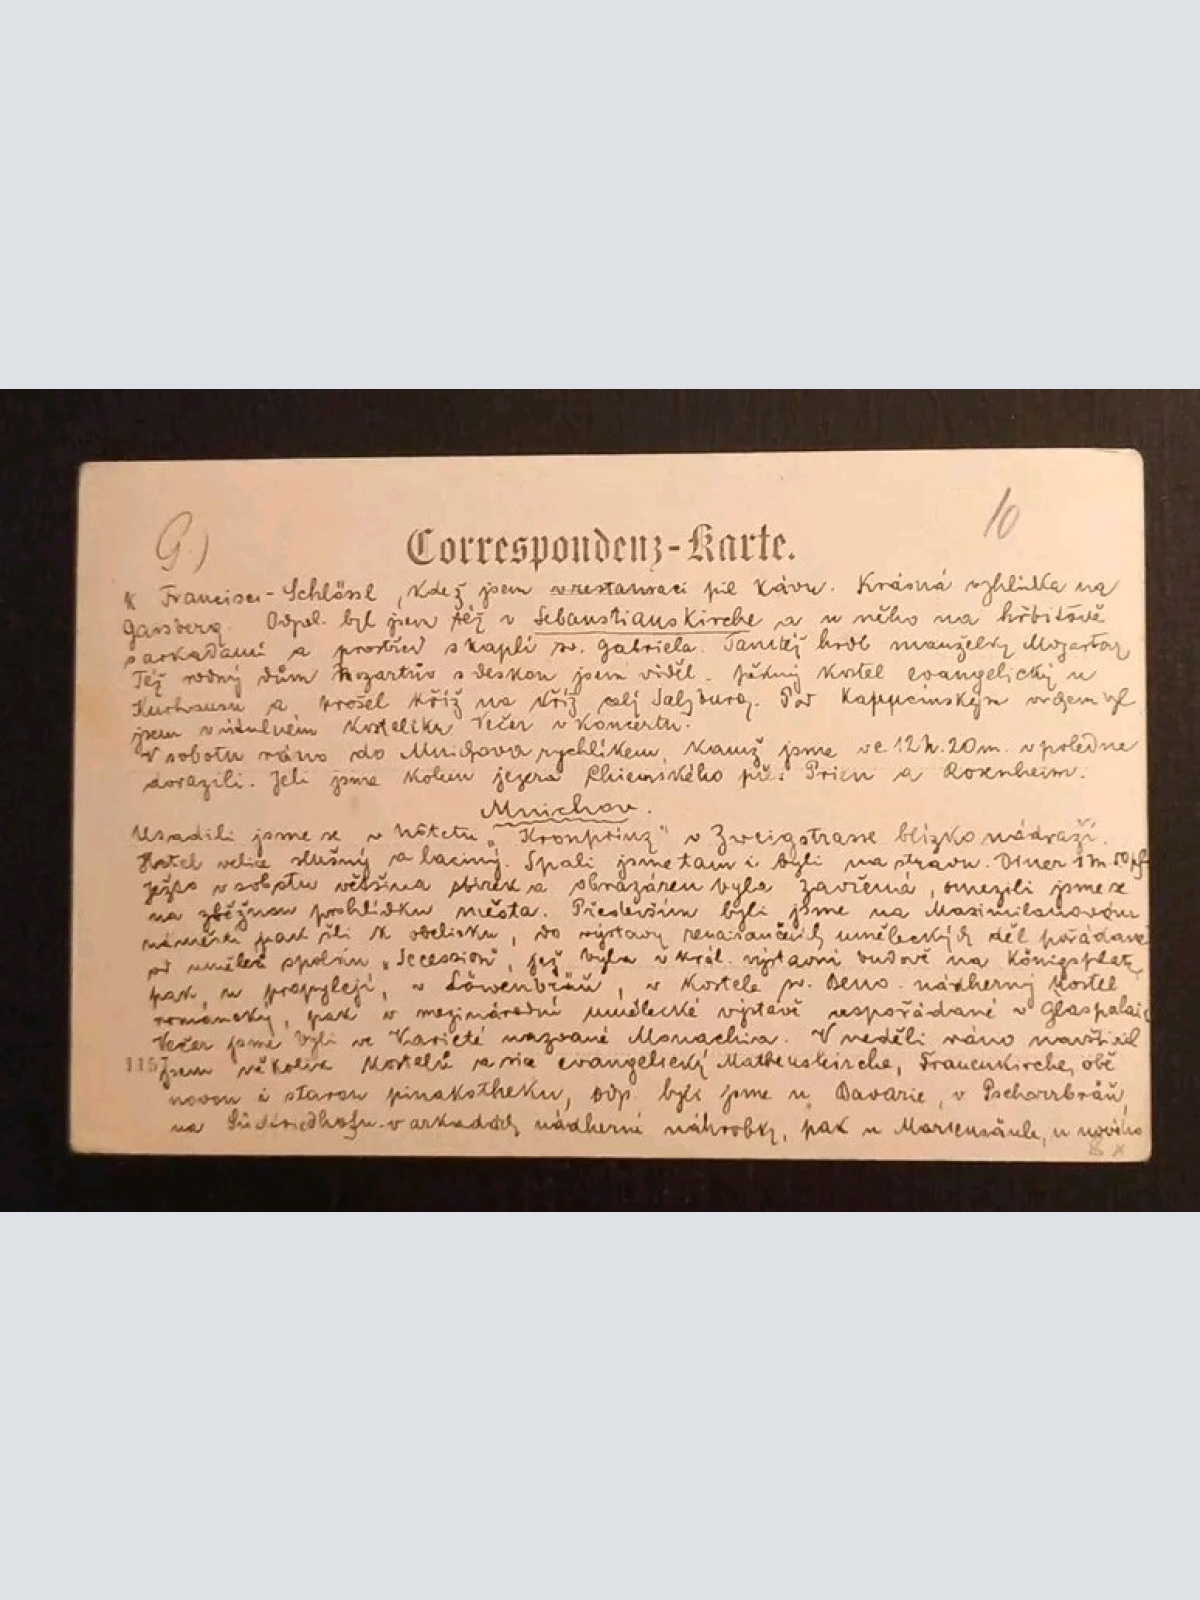 G.)
10
Correspondenz-Karte.
k Francisci-Schlössl, kdež jsem v restauraci pil kávu. Krásná vyhlídka na
Gaisberg. Odpol. byl jsem též v Sebaustianskirche a u něho na hřbitově
s arkadami a prostřed s kaplí sv. Gabriela. Tamtéž hrob manželky Mozartovy
Též rodný dům Mozartův s deskou jsem viděl. Pěkný kostel evangelický u
Kurhausu a prošel kříž na kříž celý Salzburg. Pod Kappucínským vrchem byl
jsem v kostelíku Večer v koncertu.
V sobotu ráno do Mnichova rychlíkem, kamž jsme ve 12h. 20m. v poledne
dorazili. Jeli jsme kolem jezera Chiemského přes Prien a Rosenheim.
Mnichov.
Usadili jsme se v hôtelu „Kronprinz" v Zweigstrasse blízko nádraží.
Hotel velice slušný a laciný. Spali jsme tam i byli na stravu. Diner 1 m. 50 pf
Ježto v sobotu většina sbírek a obrazáren byla zavřená, omezili jsme se
na zběžnou prohlídku města. Především byli jsme na Maximilianovom
náměstí pak šli k obelisku, do výstavy renaisančních uměleckých děl pořádané
od uměleč spolku „Secession", jež byla v král. výstavní budově na Königsplatz,
pak u propylejí, v Löwenbräu, v kostele sv. Beno. nádherný kostel
románský, pak v mezinárodní umělecké výstavě uspořádané v Glaspalais
Večer jsme byli ve Varieté nazvané Monachia. V neděli ráno navštívil
1157
jsem několik kostelů a sice evangelický Matheuskirche, Frauenkirche, obě
novou i starou pinakotheku, odp. byli jsme u Bavarie, v Pschorrbräu,
na Südfriedhofu v arkadách nádherné náhrobky, pak u Mariensäule, u nového